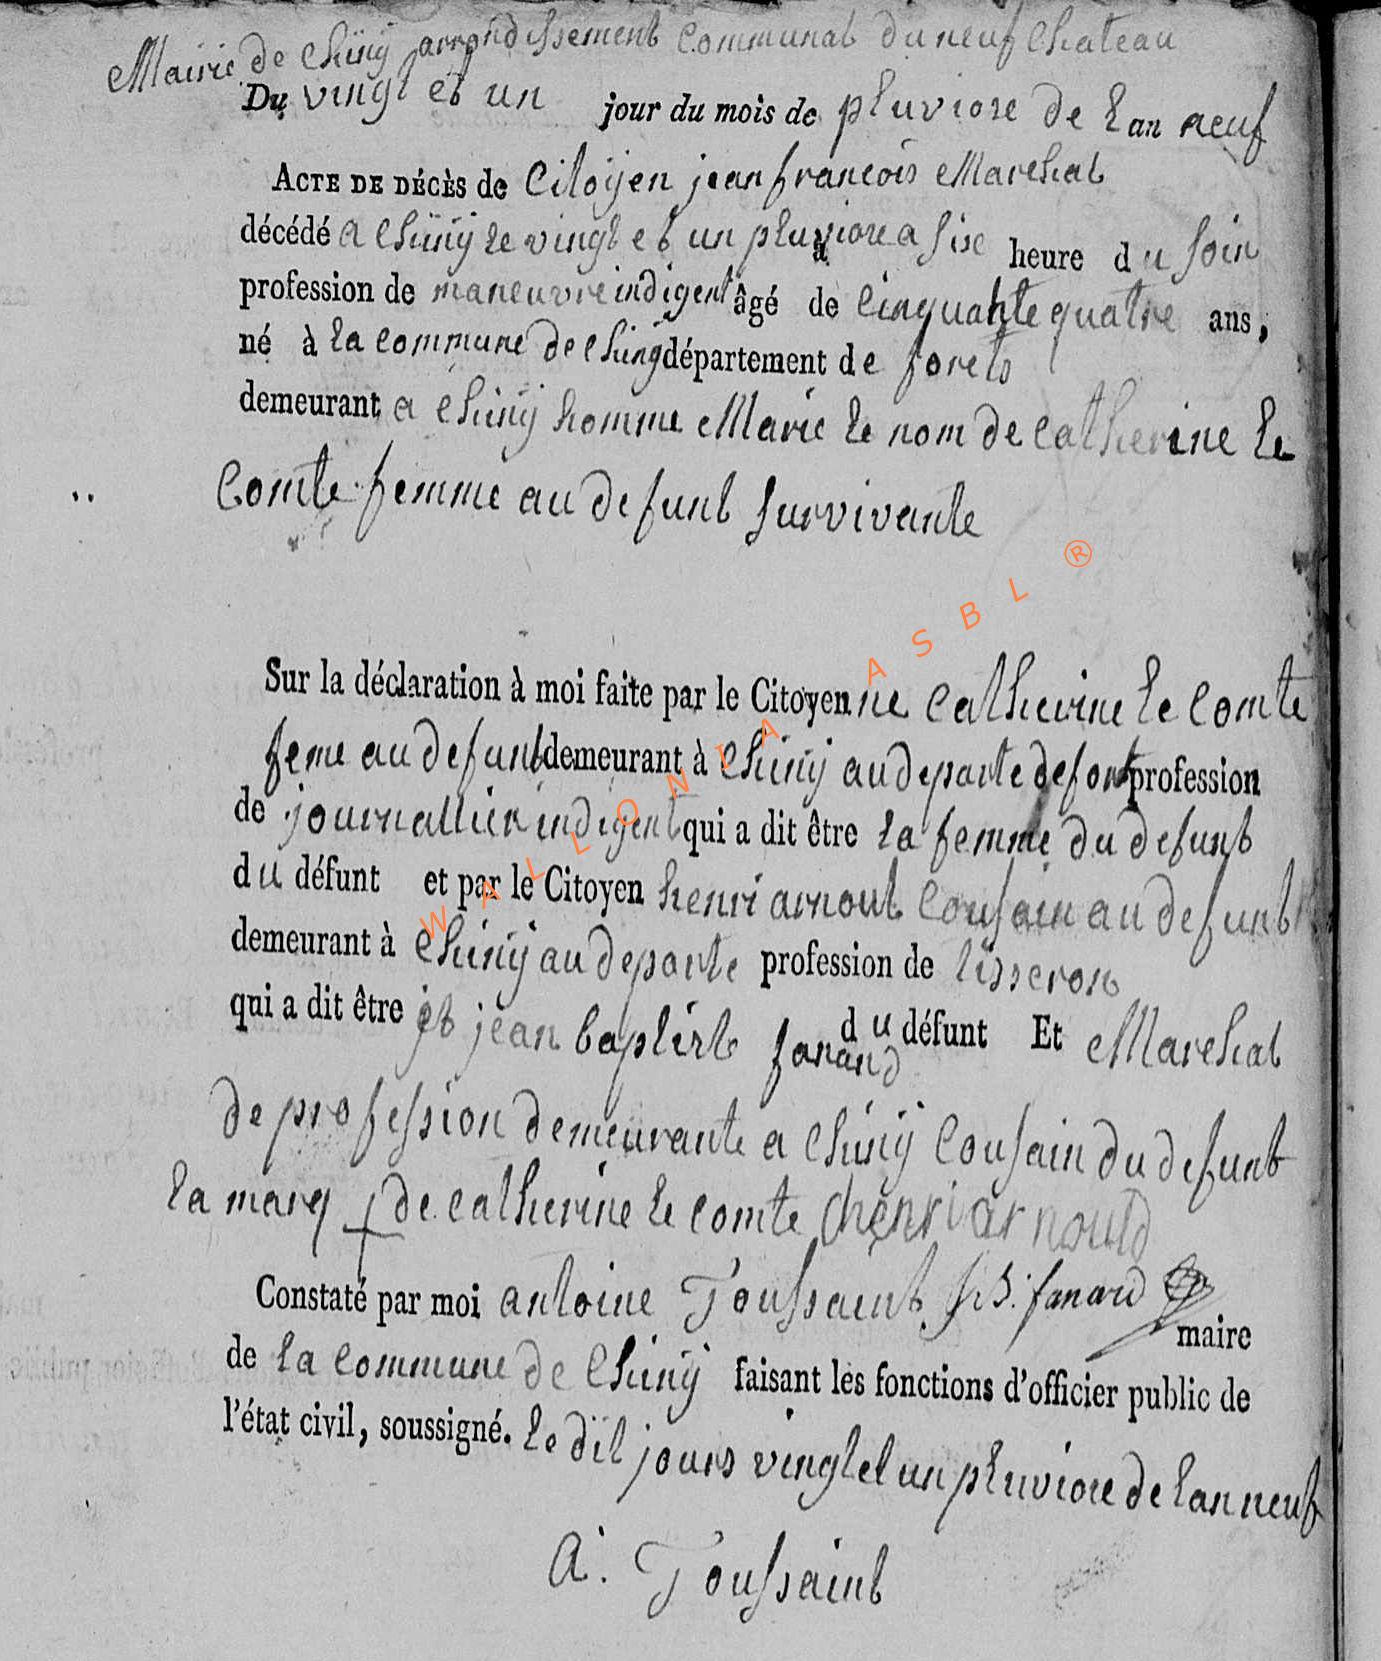 Mairie de Chiny arrondissement Communal du neuf Chateau
Du vingt et un jour du mois de pluviose de lan neuf
ACTE DE DÉCÈS de Citoyen jean francois Marechal
décédé a Chinÿ le vingt et un pluviose a sise heure du soir
profession de maneuvre indigent âgé de cinquante quatre ans,
né à la commune de Chiny département de forets
demeurant a Chinÿ homme Marié le nom de catherine le
Comte femme au defunt survivante
Sur la déclaration à moi faite par le Citoyenne Catherine le Comte
feme au defunt demeurant à Chinÿ au departe de foret profession
de journallier indigent qui a dit être la femme du defunt
du défunt et par le Citoyen henri arnout Cousain au defunt
demeurant à Chinÿ au departe profession de tisseront
qui a dit être et jean baptist fanand du défunt Et Marechal
de profession demeurante a Chinÿ Cousain du defunt
la marq de catherine le comte henri arnould
Constaté par moi antoine Toussaint J. B. fanard maire
de la commune de Chinÿ faisant les fonctions d'officier public de
l'état civil, soussigné. le dit jours vingt et un pluviose de lan neuf
A. Toussaint
WALLONIA ASBL ®